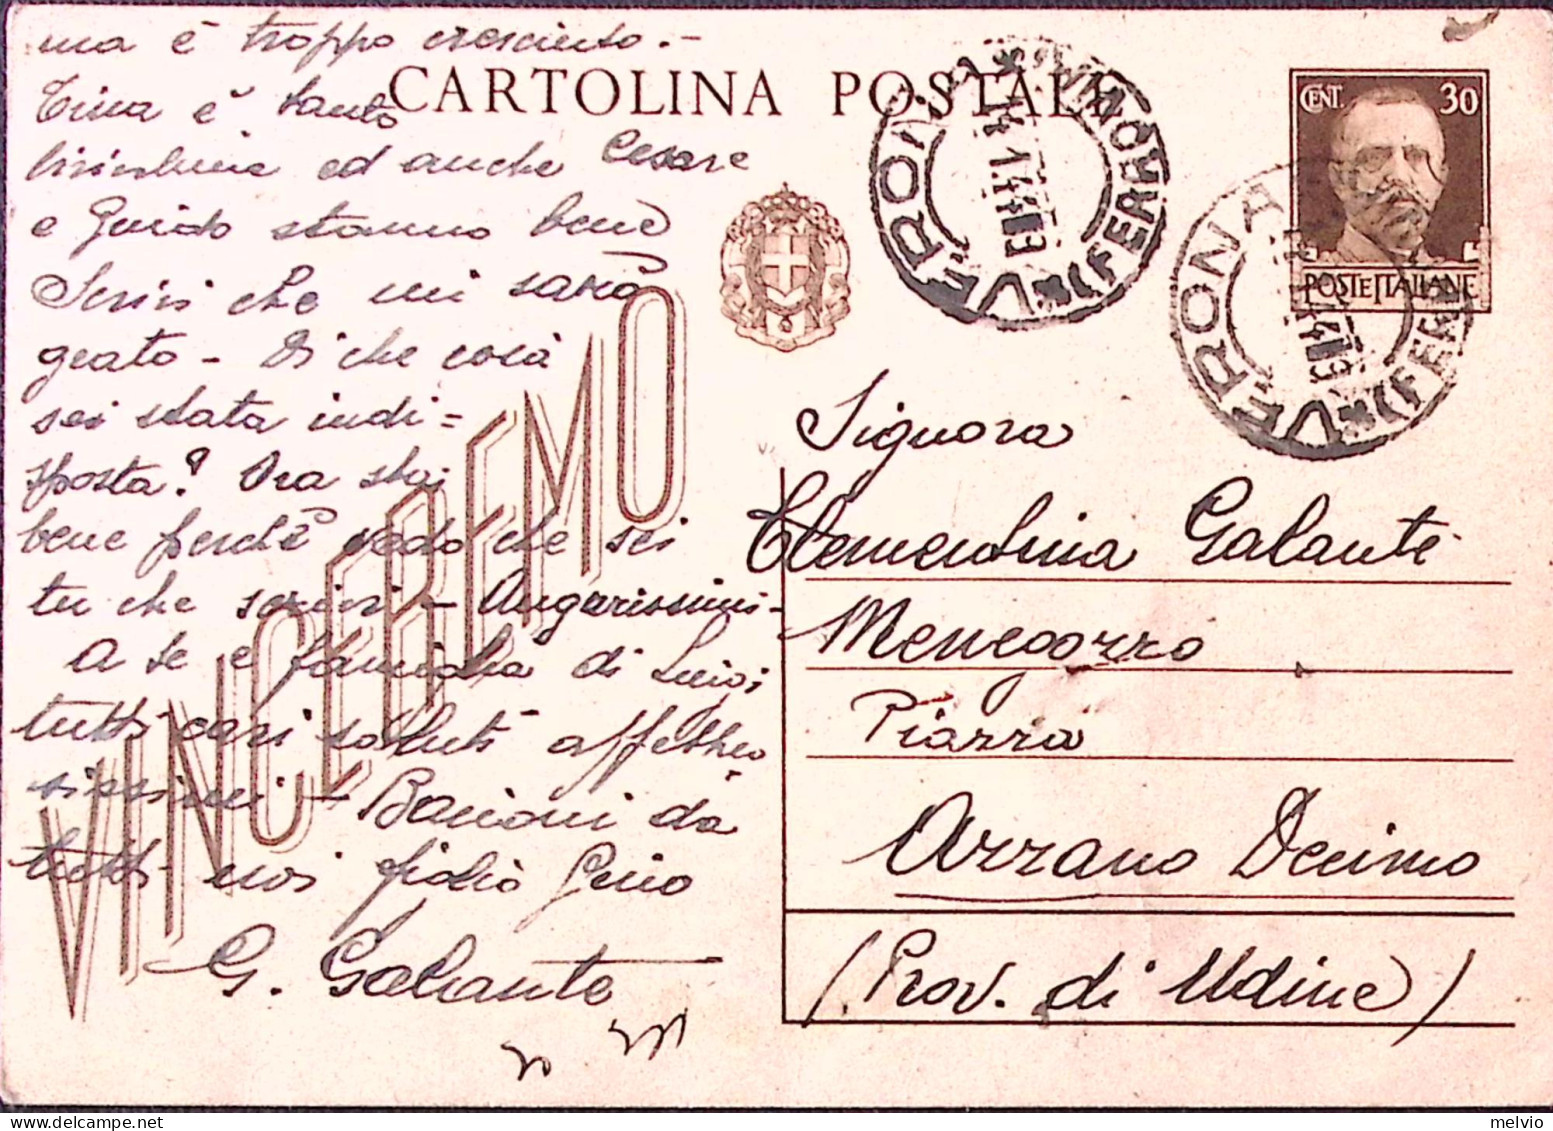 ma è troppo cresciuto.-
CARTOLINA POSTALE
CENT. 30
POSTE ITALIANE
Tina è tanto
ed anche Cesare
e Guido stanno bene
Scrivi che mi sarà
grato - Di che cosa
sei stata indi=
sposta? Ora stai
bene perchè vedo che sei
tu che scrivi - Augurissimi -
A te e famiglia di
tutti cari saluti affettuo
sissimi - Bacioni da
tutti noi figlio Gino
G. Galante
VINCEREMO
VERONA (FERROVIA)
VERONA (FERR
Signora
Clementina Galante
Menegozzo
Piazza
Azzano Decimo
(Prov. di Udine)
melvio